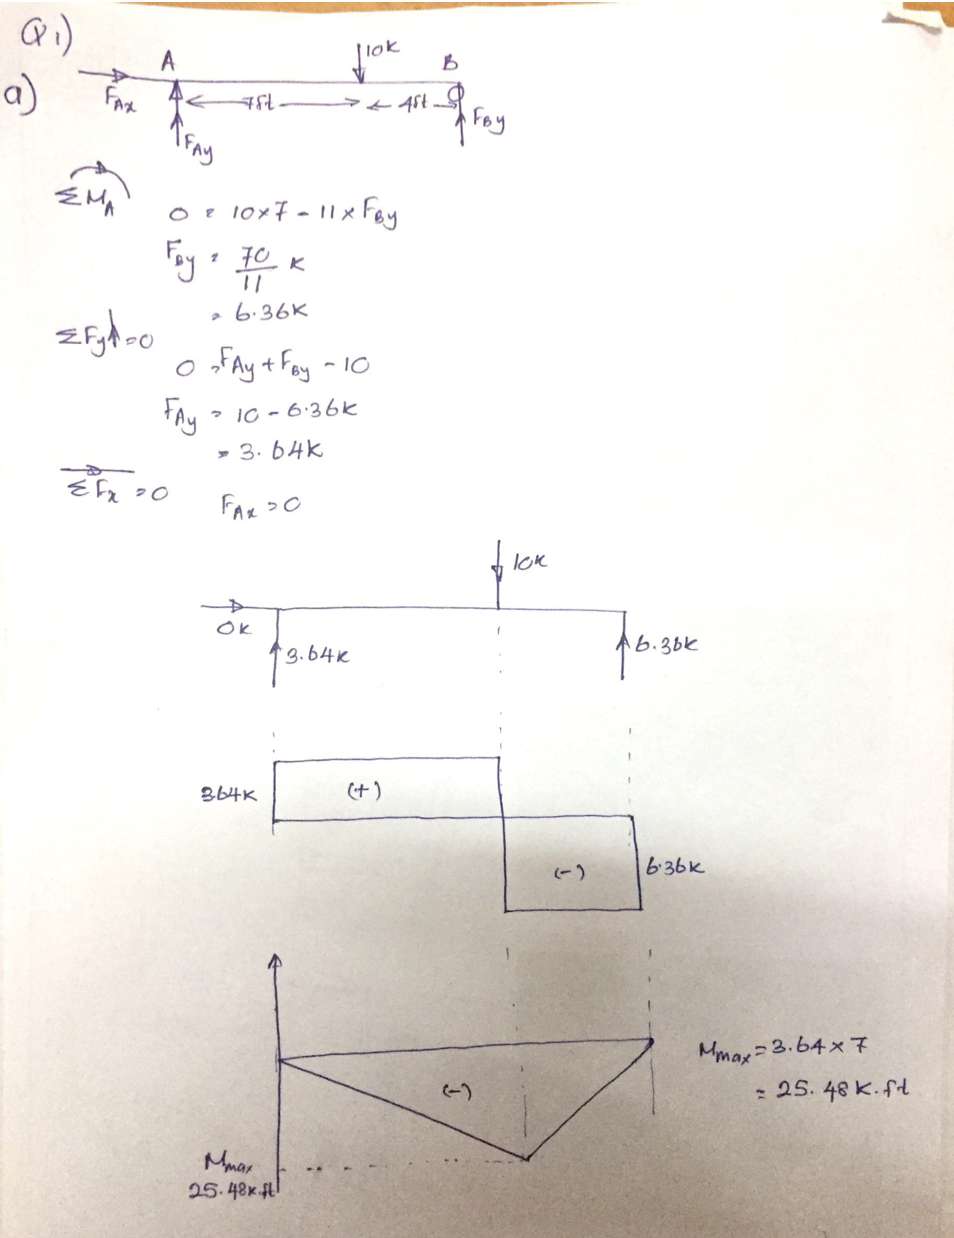 Q1)
a)
A
10k
B
F_Ax
7ft
4ft
F_By
F_Ay
ΣM_A
0 = 10×7 - 11×F_By
F_By = 70/11 K
= 6.36K
ΣFy↑=0
0 = F_Ay + F_By - 10
F_Ay = 10 - 6.36K
= 3.64K
ΣFx = 0
F_Ax = 0
10K
0K
3.64K
6.36K
364K
(+)
(-)
6.36K
(-)
M_max = 3.64×7
= 25.48 K.ft
M_max
25.48K.ft